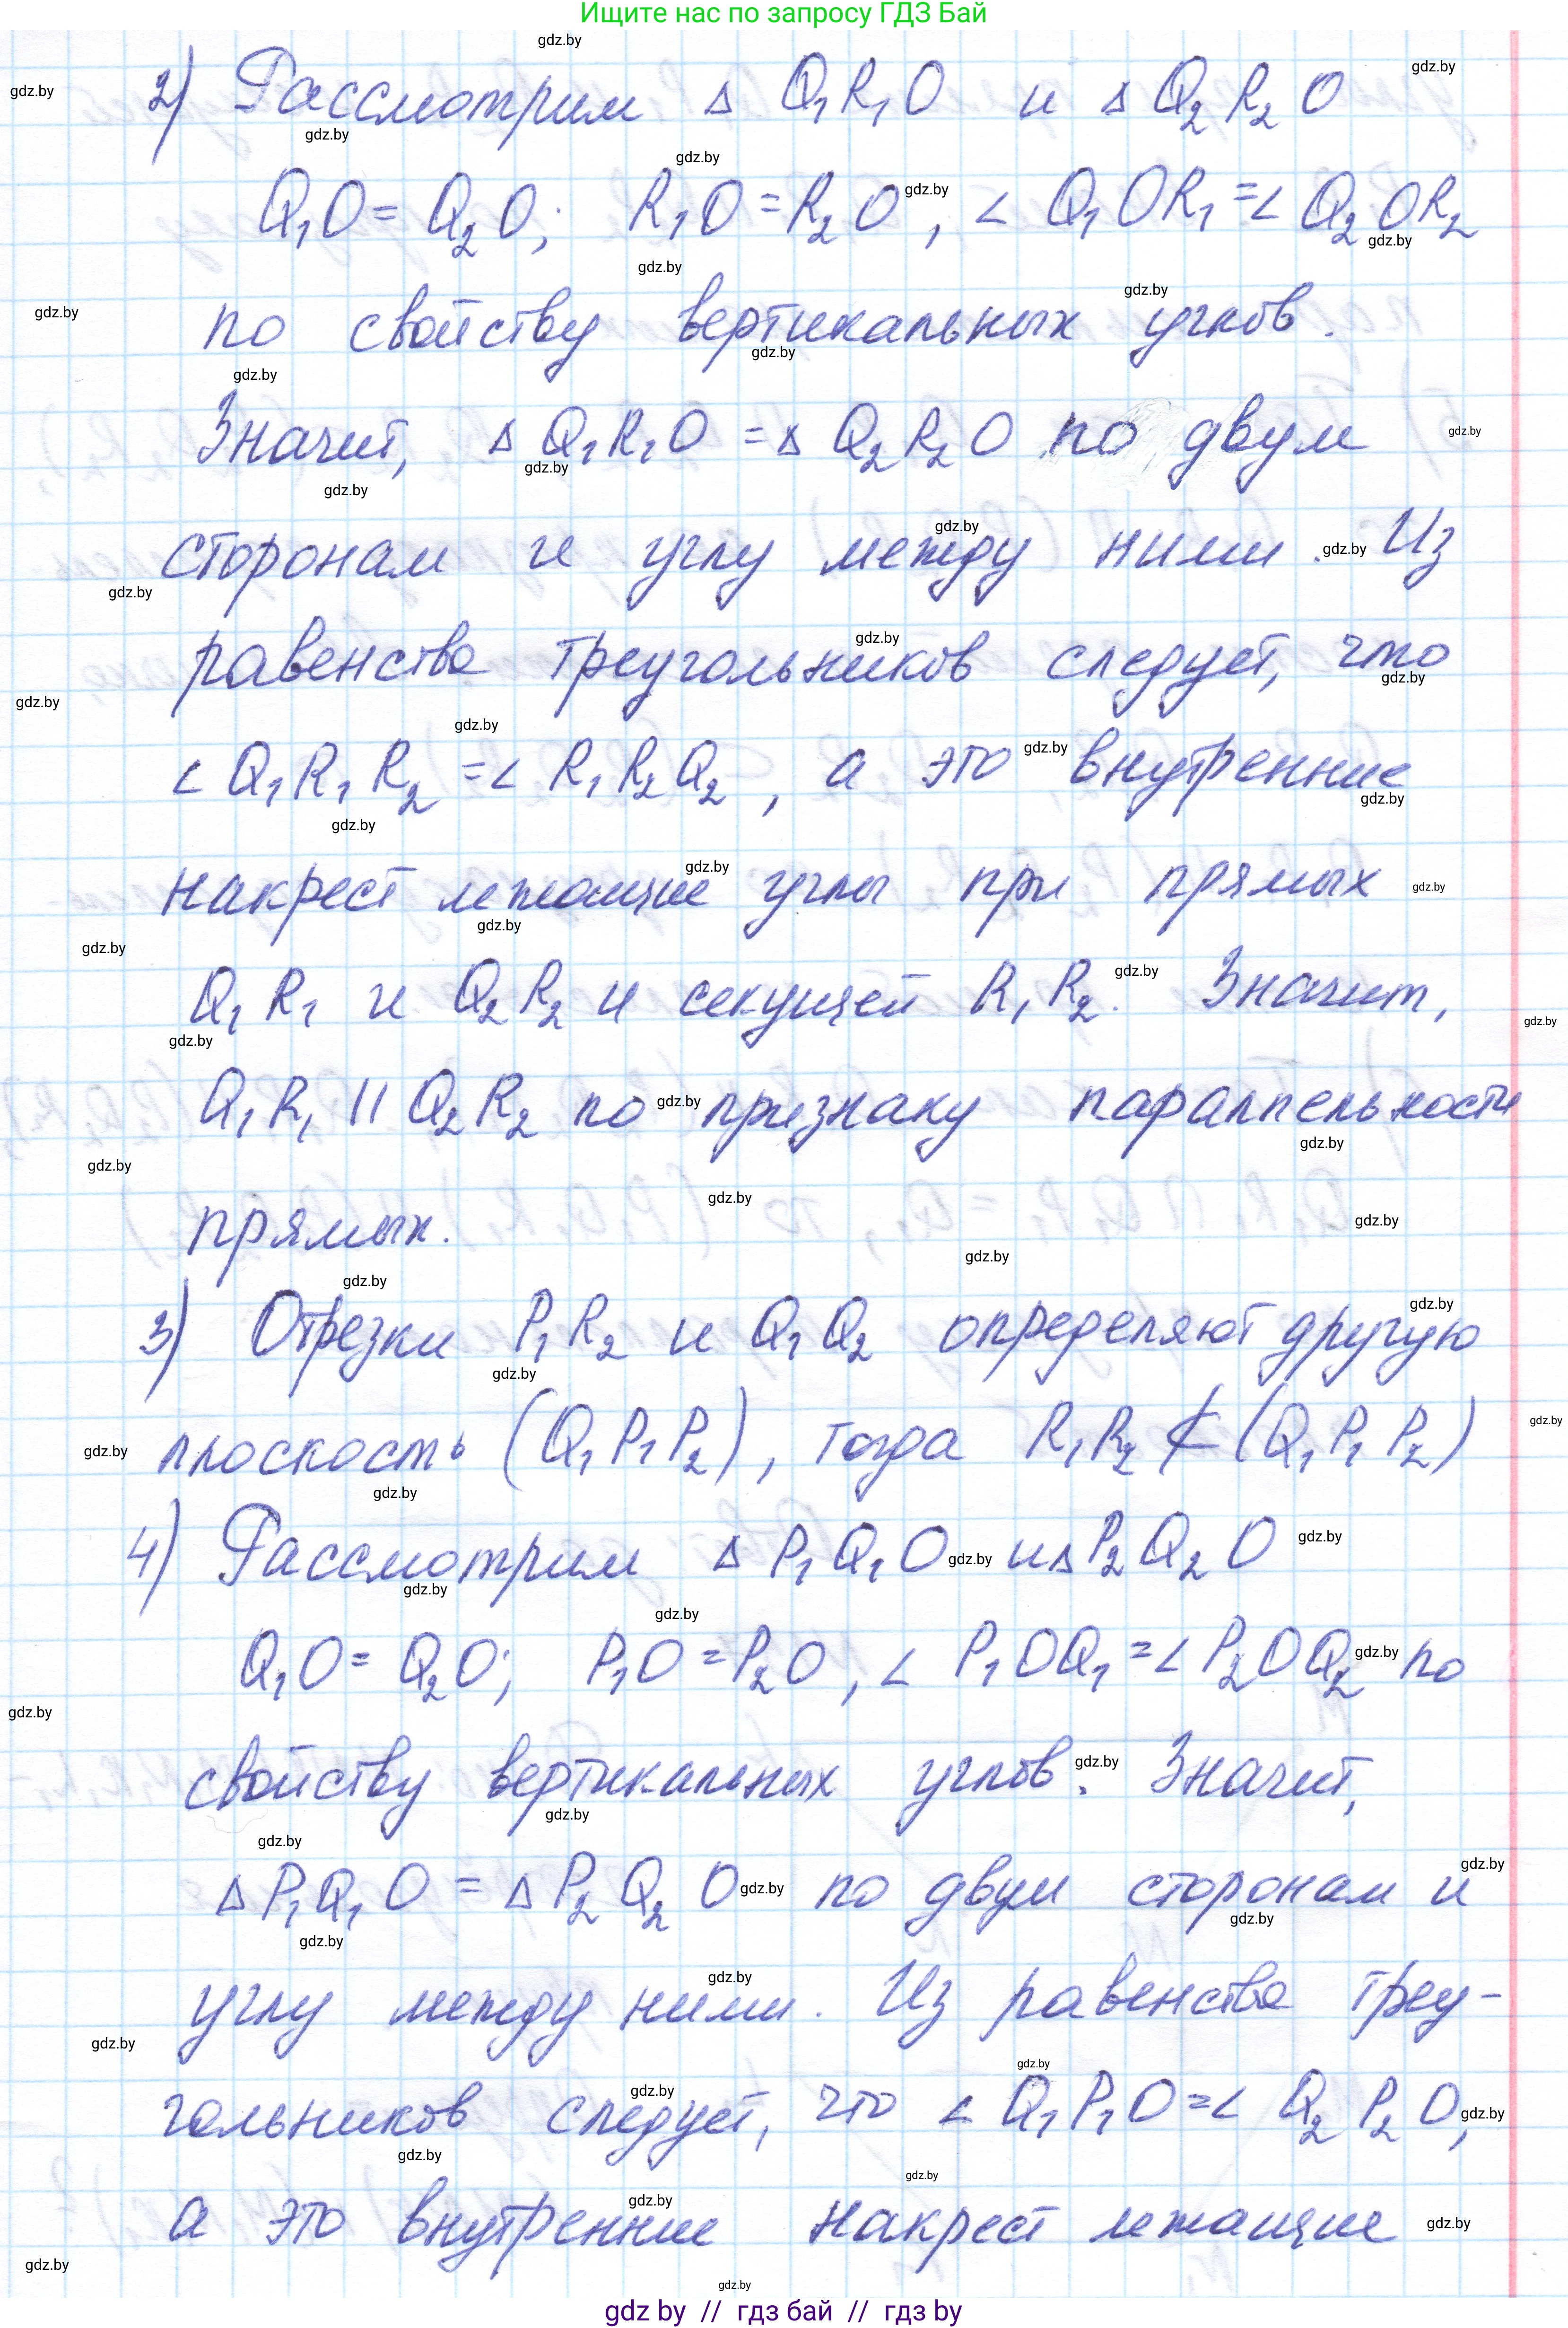 Ищите нас по запросу ГДЗ Бай
2) Рассмотрим Δ Q₁R₁O и Δ Q₂R₂O
Q₁O = Q₂O; R₁O = R₂O, ∠ Q₁OR₁ = ∠ Q₂OR₂
по свойству вертикальных углов.
Значит, Δ Q₁R₁O = Δ Q₂R₂O по двум
сторонам и углу между ними. Из
равенства треугольников следует, что
∠ Q₁R₁R₂ = ∠ R₁R₂Q₂, а это внутренние
накрест лежащие углы при прямых
Q₁R₁ и Q₂R₂ и секущей R₁R₂. Значит,
Q₁R₁ || Q₂R₂ по признаку параллельности
прямых.
3) Отрезки P₁R₂ и Q₁Q₂ определяют другую
плоскость (Q₁P₁P₂), тогда R₁R₂ ⊄ (Q₁P₁P₂)
4) Рассмотрим Δ P₁Q₁O и Δ P₂Q₂O
Q₁O = Q₂O; P₁O = P₂O, ∠ P₁OQ₁ = ∠ P₂OQ₂ по
свойству вертикальных углов. Значит,
Δ P₁Q₁O = Δ P₂Q₂O по двум сторонам и
углу между ними. Из равенства треу-
гольников следует, что ∠ Q₁P₁O = ∠ Q₂P₂O,
а это внутренние накрест лежащие
gdz by // гдз бай // гдз by